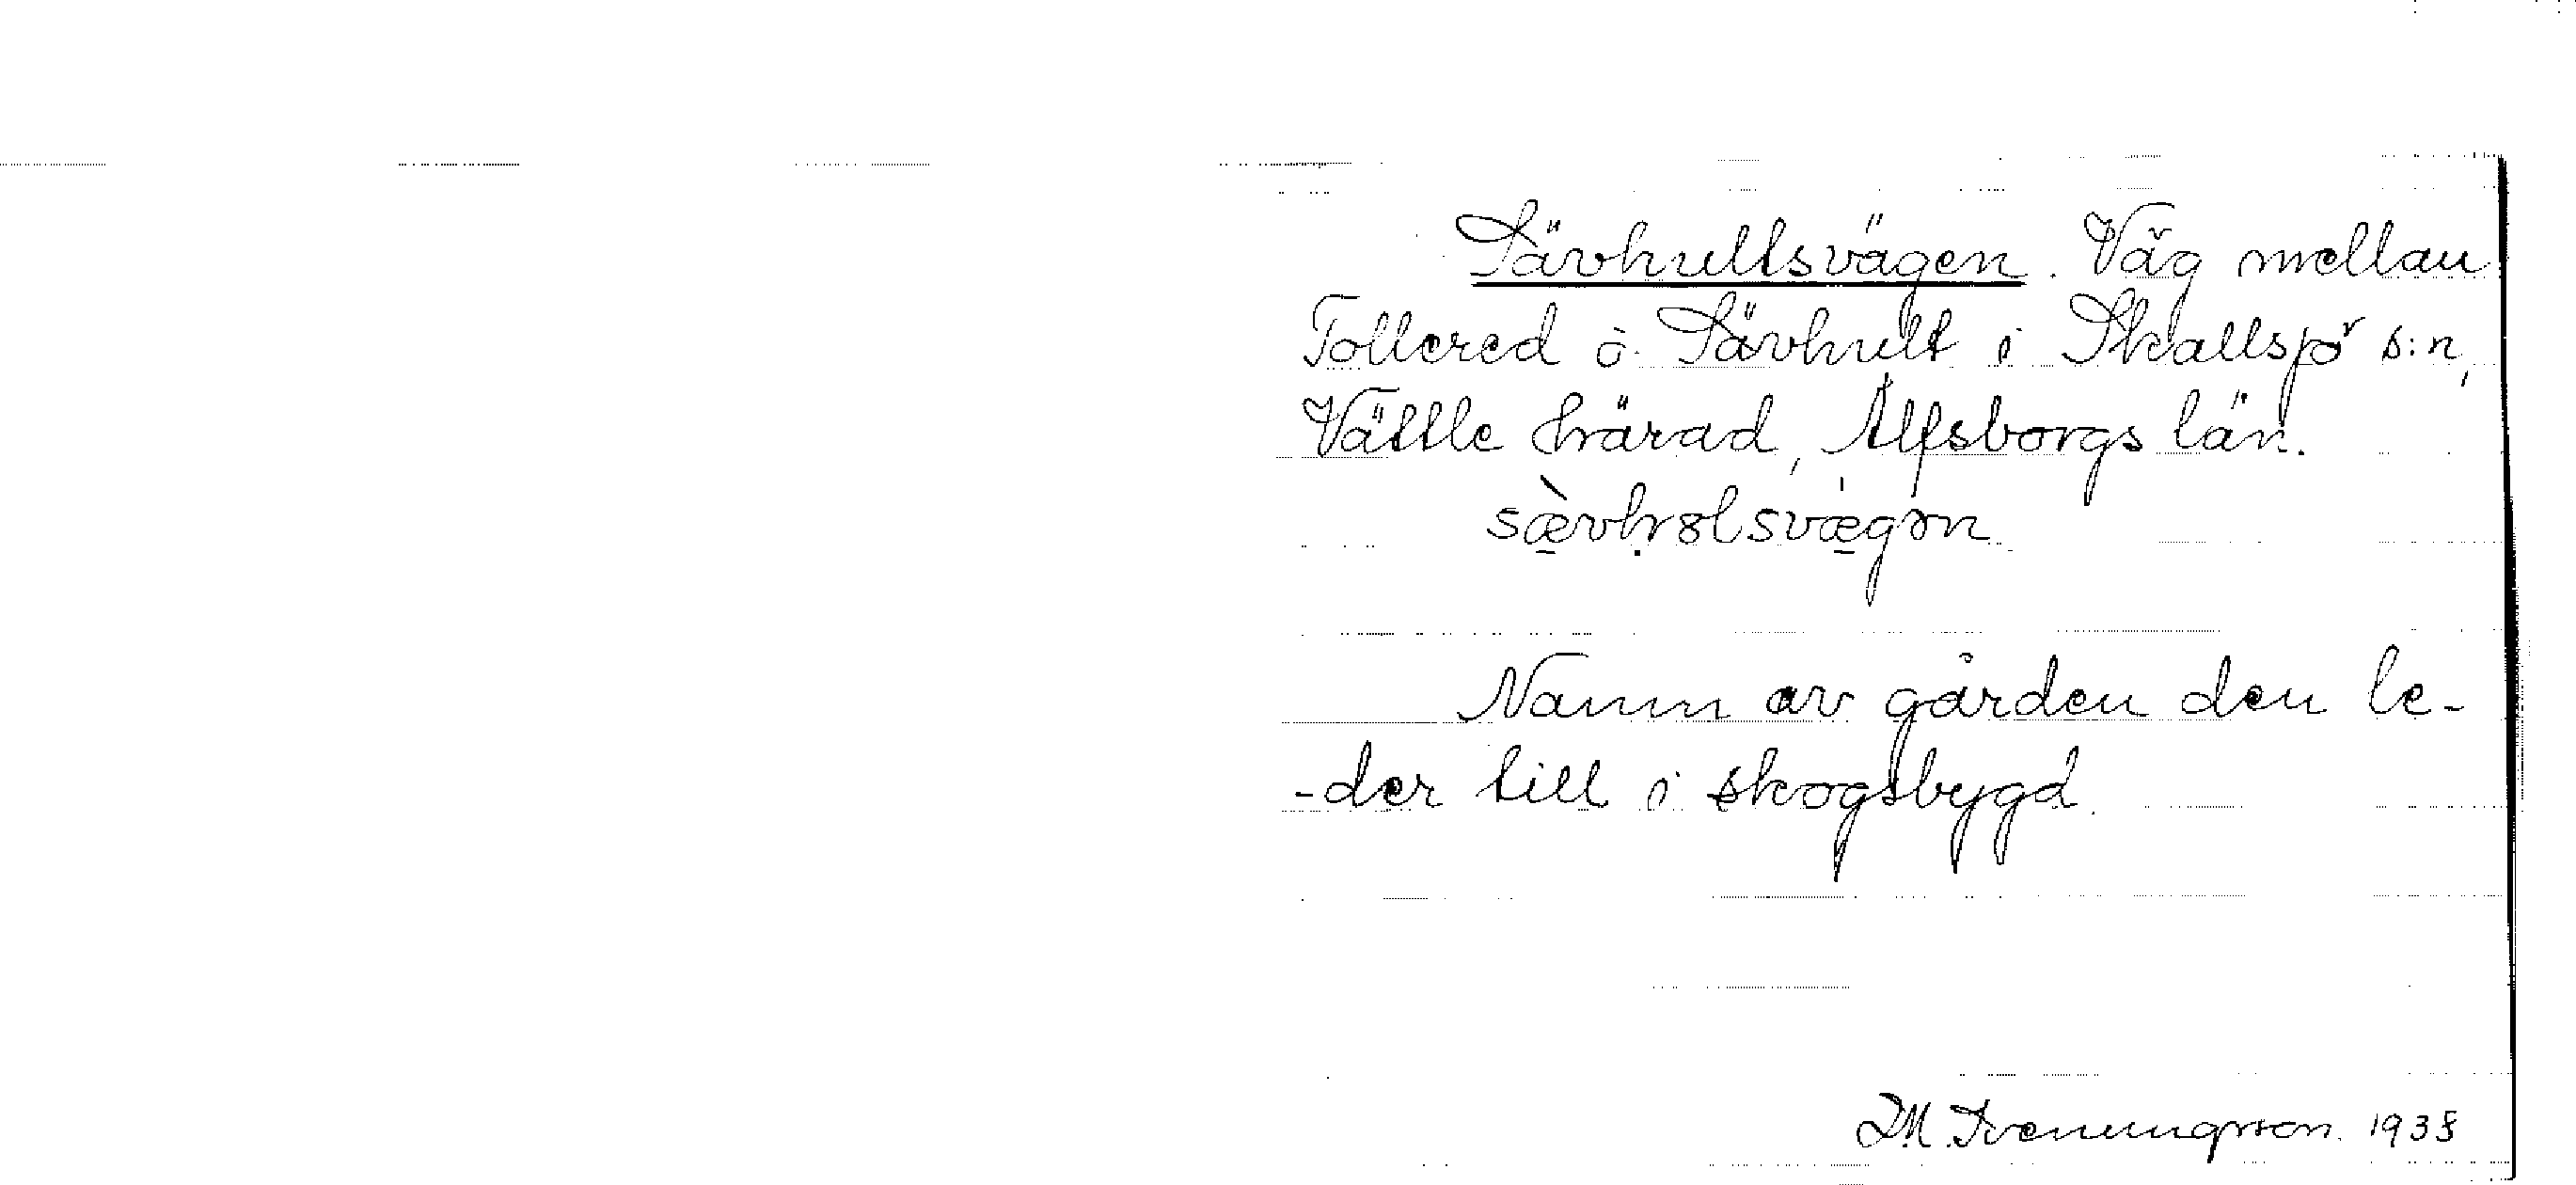 Sävhultsvägen. Väg mellan
Tollered o. Sävhult i Skallsjö s:n,
Vättle härad, Älfsborgs län.
sævhʉlsvægən
Namn av gården den le-
-der till i skogsbygd.
Svenungsson. 1935